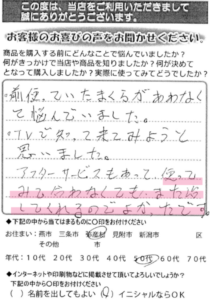 この度は、当店をご利用いただきまして
誠にありがとうございます。
お客様のお喜びの声をお聞かせください。
商品を購入する前にどんなことで悩んでいましたか？
何がきっかけで当店や商品を知りましたか？何が決めて
となって購入しましたか？実際に使ってみてどうでしたか？
・前使っていたまくらがあわなく
て悩んでいました。
・TVで知って来てみようと
思いました。
アフターサービスもあって、使って
みて合わなくても、また
してくれるのでよかったです。
◆下記の中から当てはまるものに○印をお付けください
お住まい：燕市 三条市 見附市 新潟市 区
その他 市
年代：10代 20代 30代 40代 50代 60代 70代
◆インターネットや印刷物などに掲載させて頂いてよろしいでしょうか？
下記の中から○印をお付けください
( )名前を出してもよい ( )イニシャルならOK